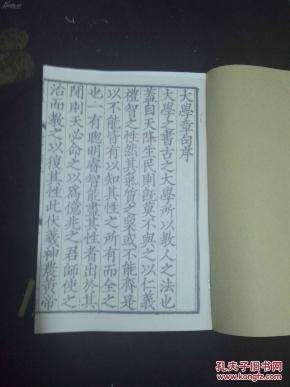 大學章句序
大學之書古之大學所以敎人之法也
蓋自天降生民則旣莫不與之以仁義
禮智之性然其氣質之稟或不能齊是
以不能皆有以知其性之所有而全之
也一有聰明睿智能盡其性者出於其
閒則天必命之以爲億兆之君師使之
治而敎之以復其性此伏羲神農黃帝
孔夫子旧书网